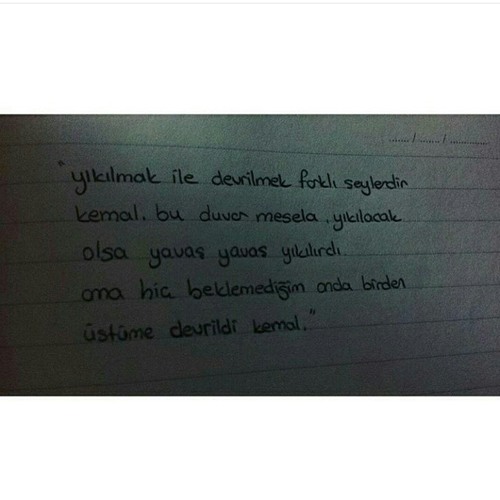 ....../....../............
"yıkılmak ile devrilmek farklı şeylerdir
kemal. bu duvar mesela, yıkılacak
olsa yavaş yavaş yıkılırdı.
ama hiç beklemediğim anda birden
üstüme devrildi kemal."